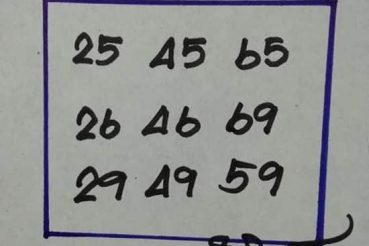 25 45 65
26 46 69
29 49 59